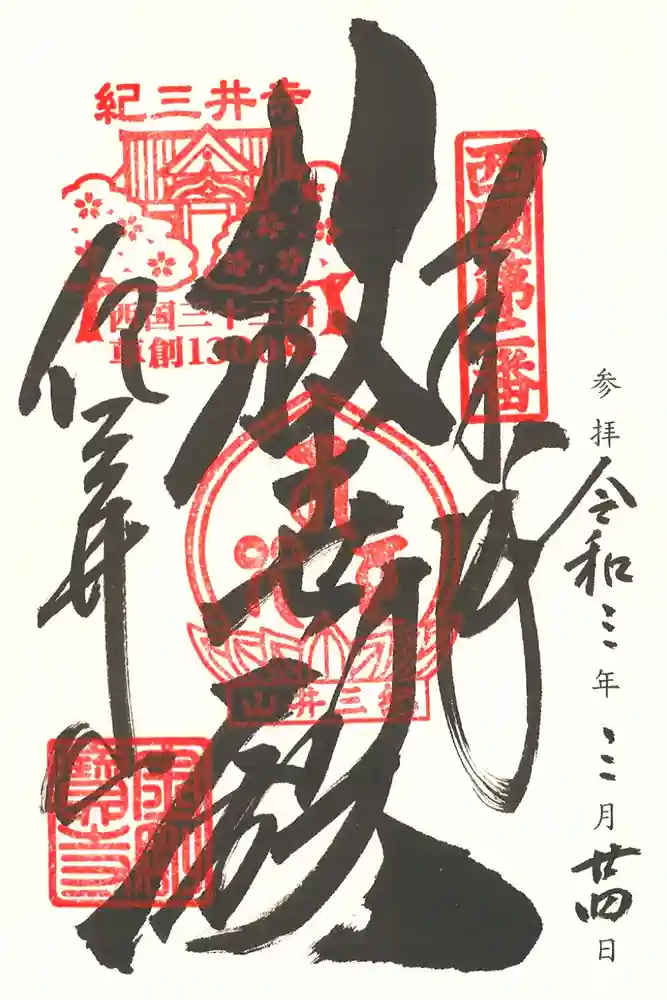 参拝 令和三年三月廿四日
西國第二番
奉拝
救世殿
紀三井寺
西国三十三所
草創1300年
紀三井山
紀三井寺